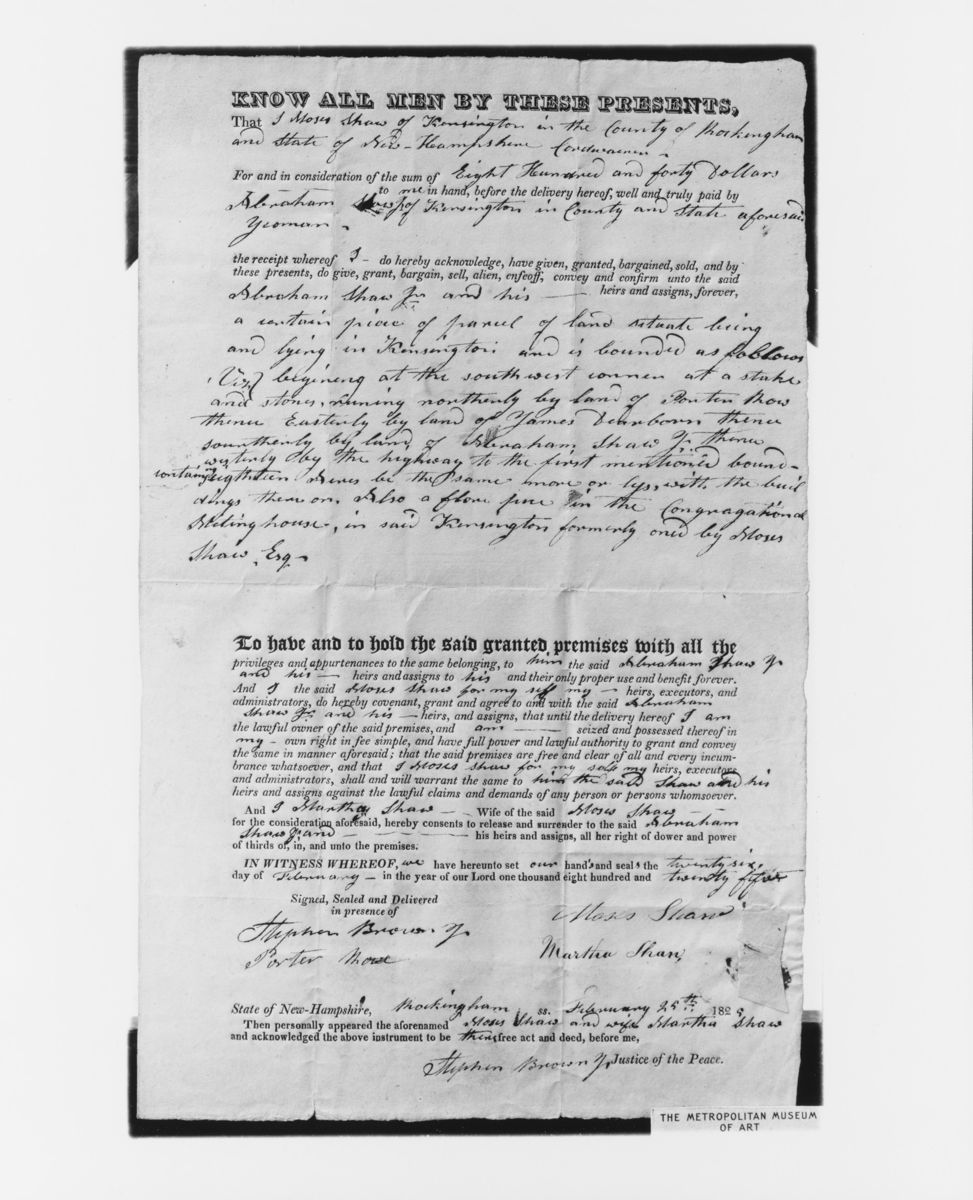 KNOW ALL MEN BY THESE PRESENTS,
That I Moses Shaw of Kensington in the County of Rockingham
and State of New-Hampshire Cordwainer
For and in consideration of the sum of Eight Hundred and forty Dollars
to me in hand, before the delivery hereof, well and truly paid by
Abraham Shaw Jr of Kensington in County and State aforesaid
Yeoman
the receipt whereof I do hereby acknowledge, have given, granted, bargained, sold, and by
these presents, do give, grant, bargain, sell, alien, enfeoff, convey and confirm unto the said
Abraham Shaw Jr and his heirs and assigns, forever,
a certain piece of parcel of land situate being
and lying in Kensington and is bounded as follows
(Viz) begining at the southwest corner at a stake
and stones, runing northerly by land of Porter Row
thence Easterly by land of James Dearborn thence
sourtherly by land of Abraham Shaw Jr thence
westerly by the highway to the first mentioned bound-
containing eighteen Acres be the same more or less, with the buil
dings there on. Also a flore pue in the Congragational
Meetinghouse, in said Kensington formerly oned by Moses
Shaw Esq
To have and to hold the said granted premises with all the
privileges and appurtenances to the same belonging, to him the said Abraham Shaw Jr
and his heirs and assigns to his and their only proper use and benefit forever.
And I the said Moses Shaw for my self my heirs, executors, and
administrators, do hereby covenant, grant and agree to and with the said Abraham
Shaw Jr and his heirs, and assigns, that until the delivery hereof I am
the lawful owner of the said premises, and am seized and possessed thereof in
my own right in fee simple, and have full power and lawful authority to grant and convey
the same in manner aforesaid; that the said premises are free and clear of all and every incum-
brance whatsoever, and that I Moses Shaw for my self my heirs, executors
and administrators, shall and will warrant the same to him the said Shaw and his
heirs and assigns against the lawful claims and demands of any person or persons whomsoever.
And I Martha Shaw Wife of the said Moses Shaw
for the consideration aforesaid, hereby consents to release and surrender to the said Abraham
Shaw Jr and his heirs and assigns, all her right of dower and power
of thirds of, in, and unto the premises.
IN WITNESS WHEREOF, we have hereunto set our hands and seals the twenty six
day of February in the year of our Lord one thousand eight hundred and twenty
Signed, Sealed and Delivered
in presence of
Moses Shaw
Stephen Brown Jr
Martha Shaw
Porter Row
State of New-Hampshire, Rockingham ss. February 182
Then personally appeared the aforenamed Moses Shaw and wife Martha Shaw
and acknowledged the above instrument to be their free act and deed, before me,
Stephen Brown Jr, Justice of the Peace.
THE METROPOLITAN MUSEUM
OF ART